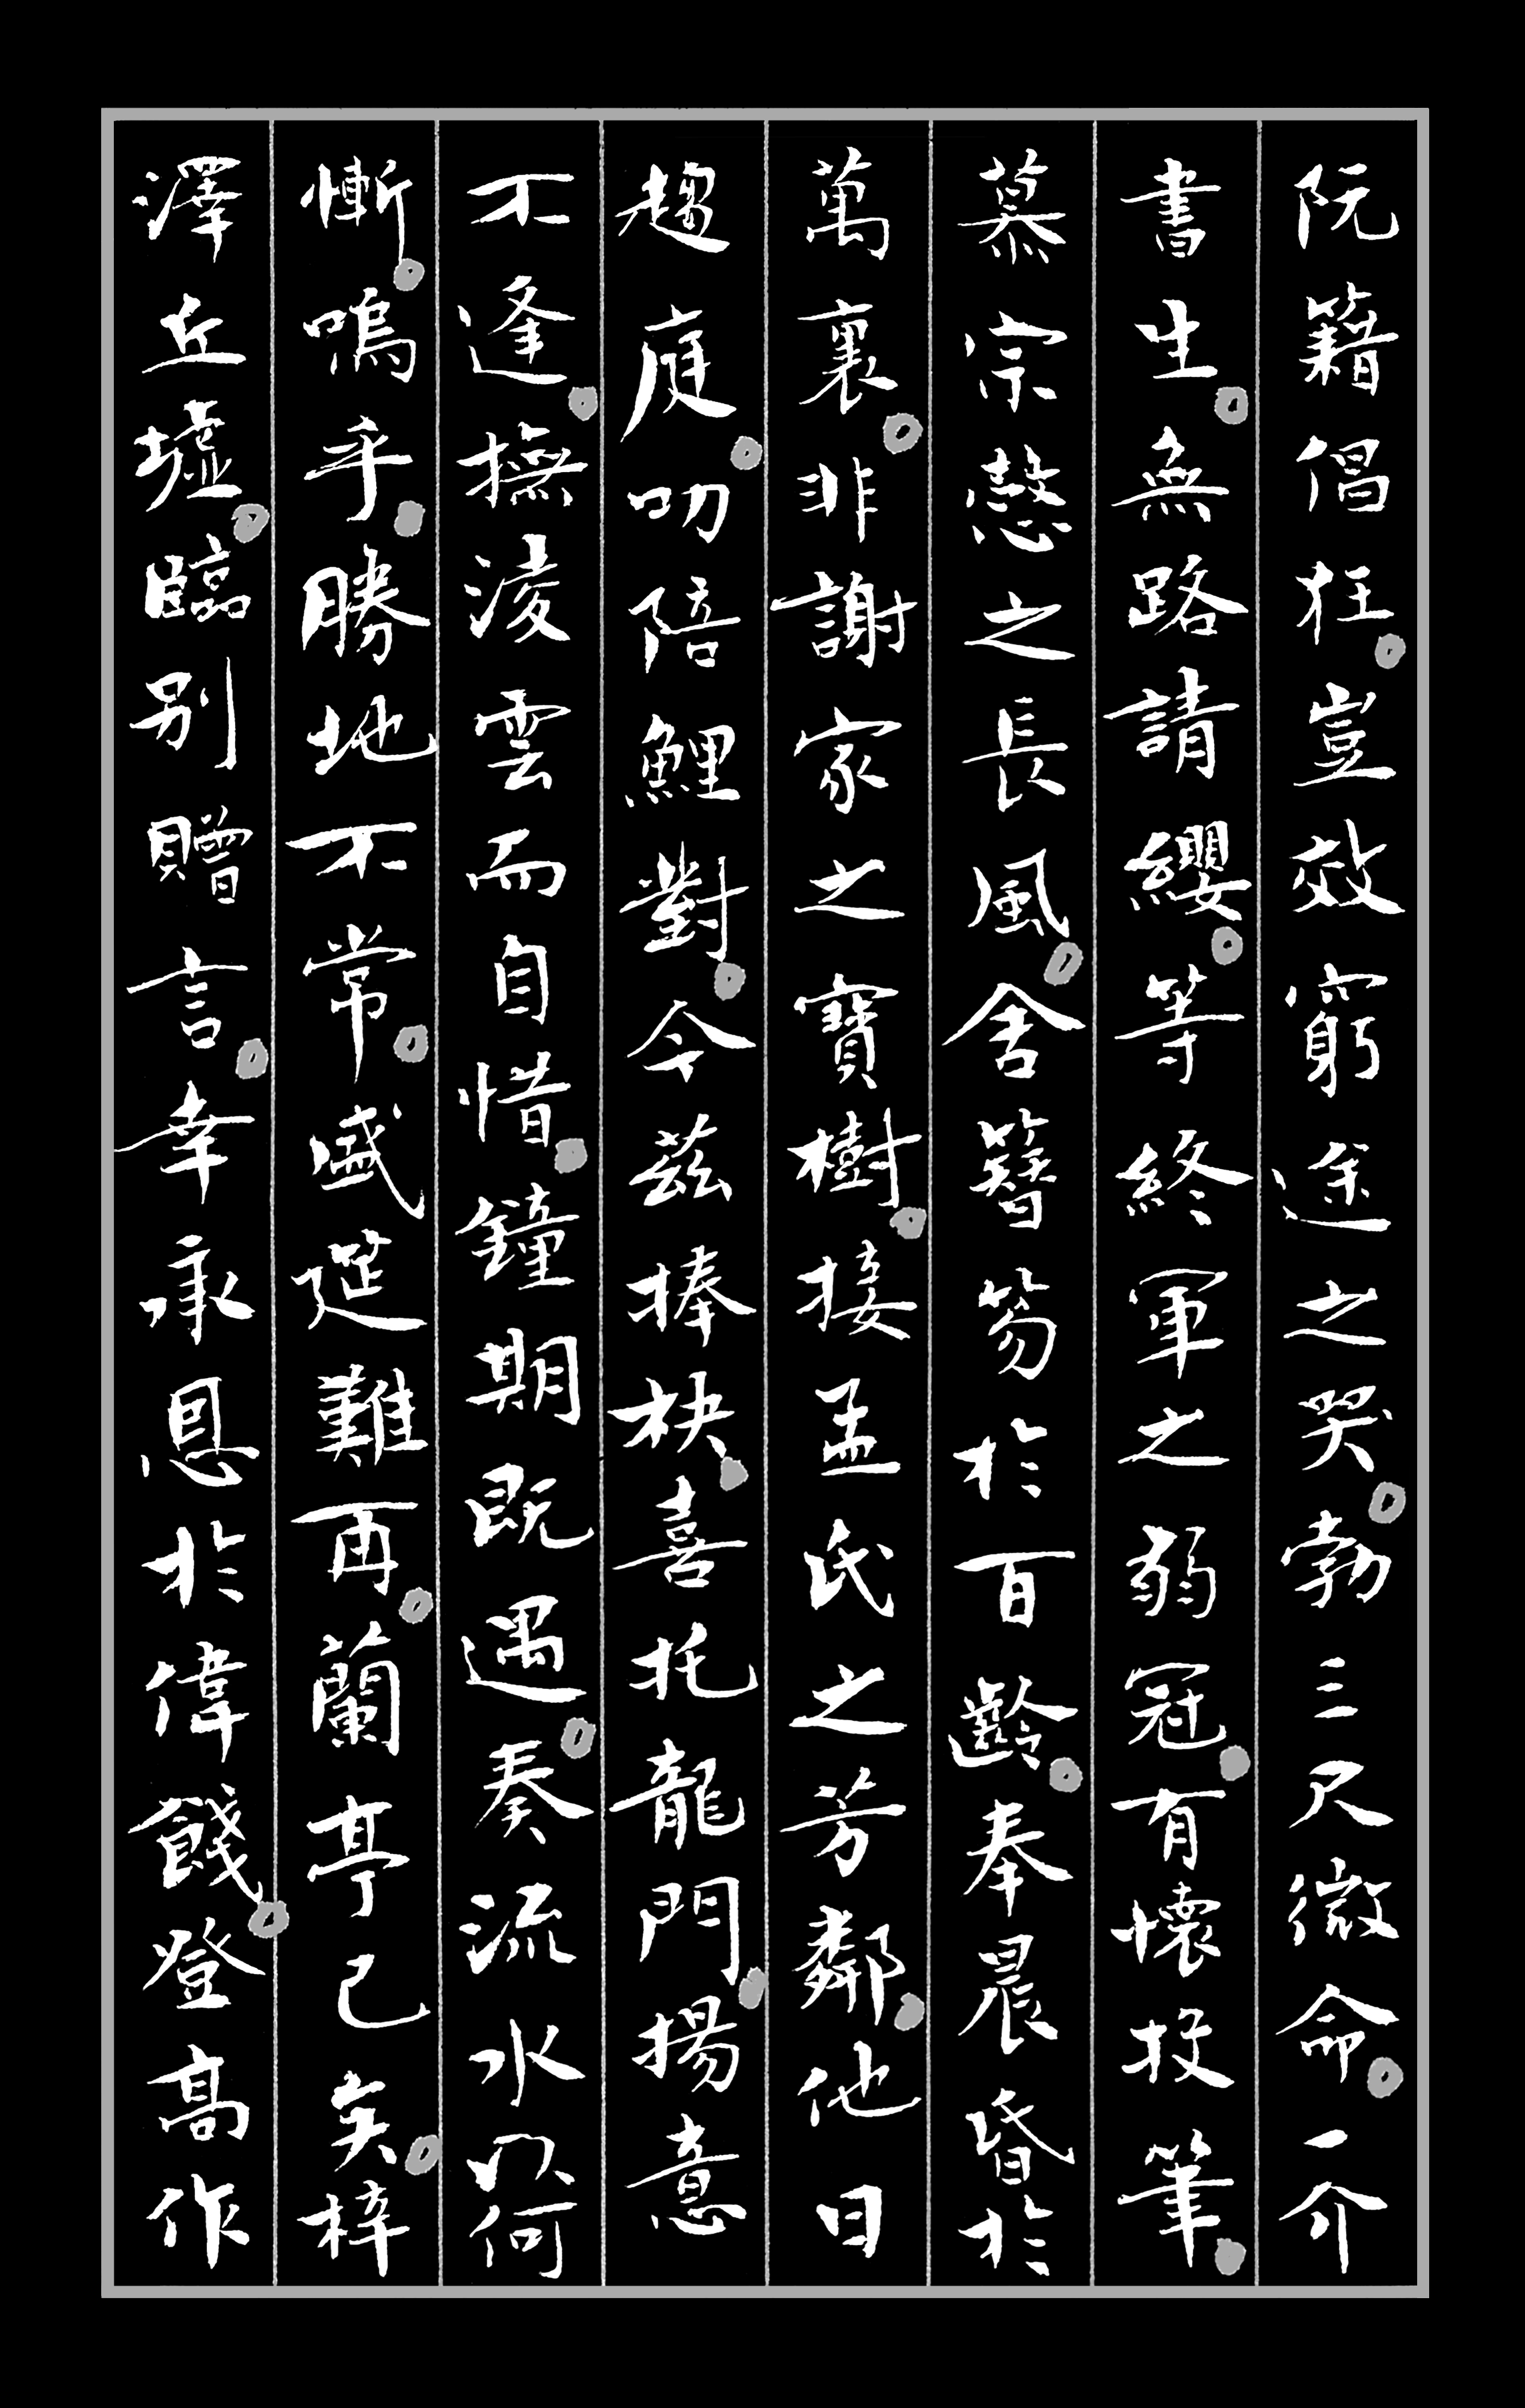 阮籍倡狂豈效窮途之哭勃三尺微命一介
書生無路請纓等終軍之弱冠有懷投筆
慕宗愨之長風舍簪笏於百齡奉晨昏於
萬裏非謝家之寶樹接孟氏之芳鄰他日
趨庭叨陪鯉對今茲捧袂喜托龍門揚意
不逢撫淩雲而自惜鐘期既遇奏流水以何
慚嗚乎勝地不常盛筵難再蘭亭已矣梓
澤丘墟臨別贈言幸承恩於偉餞登高作